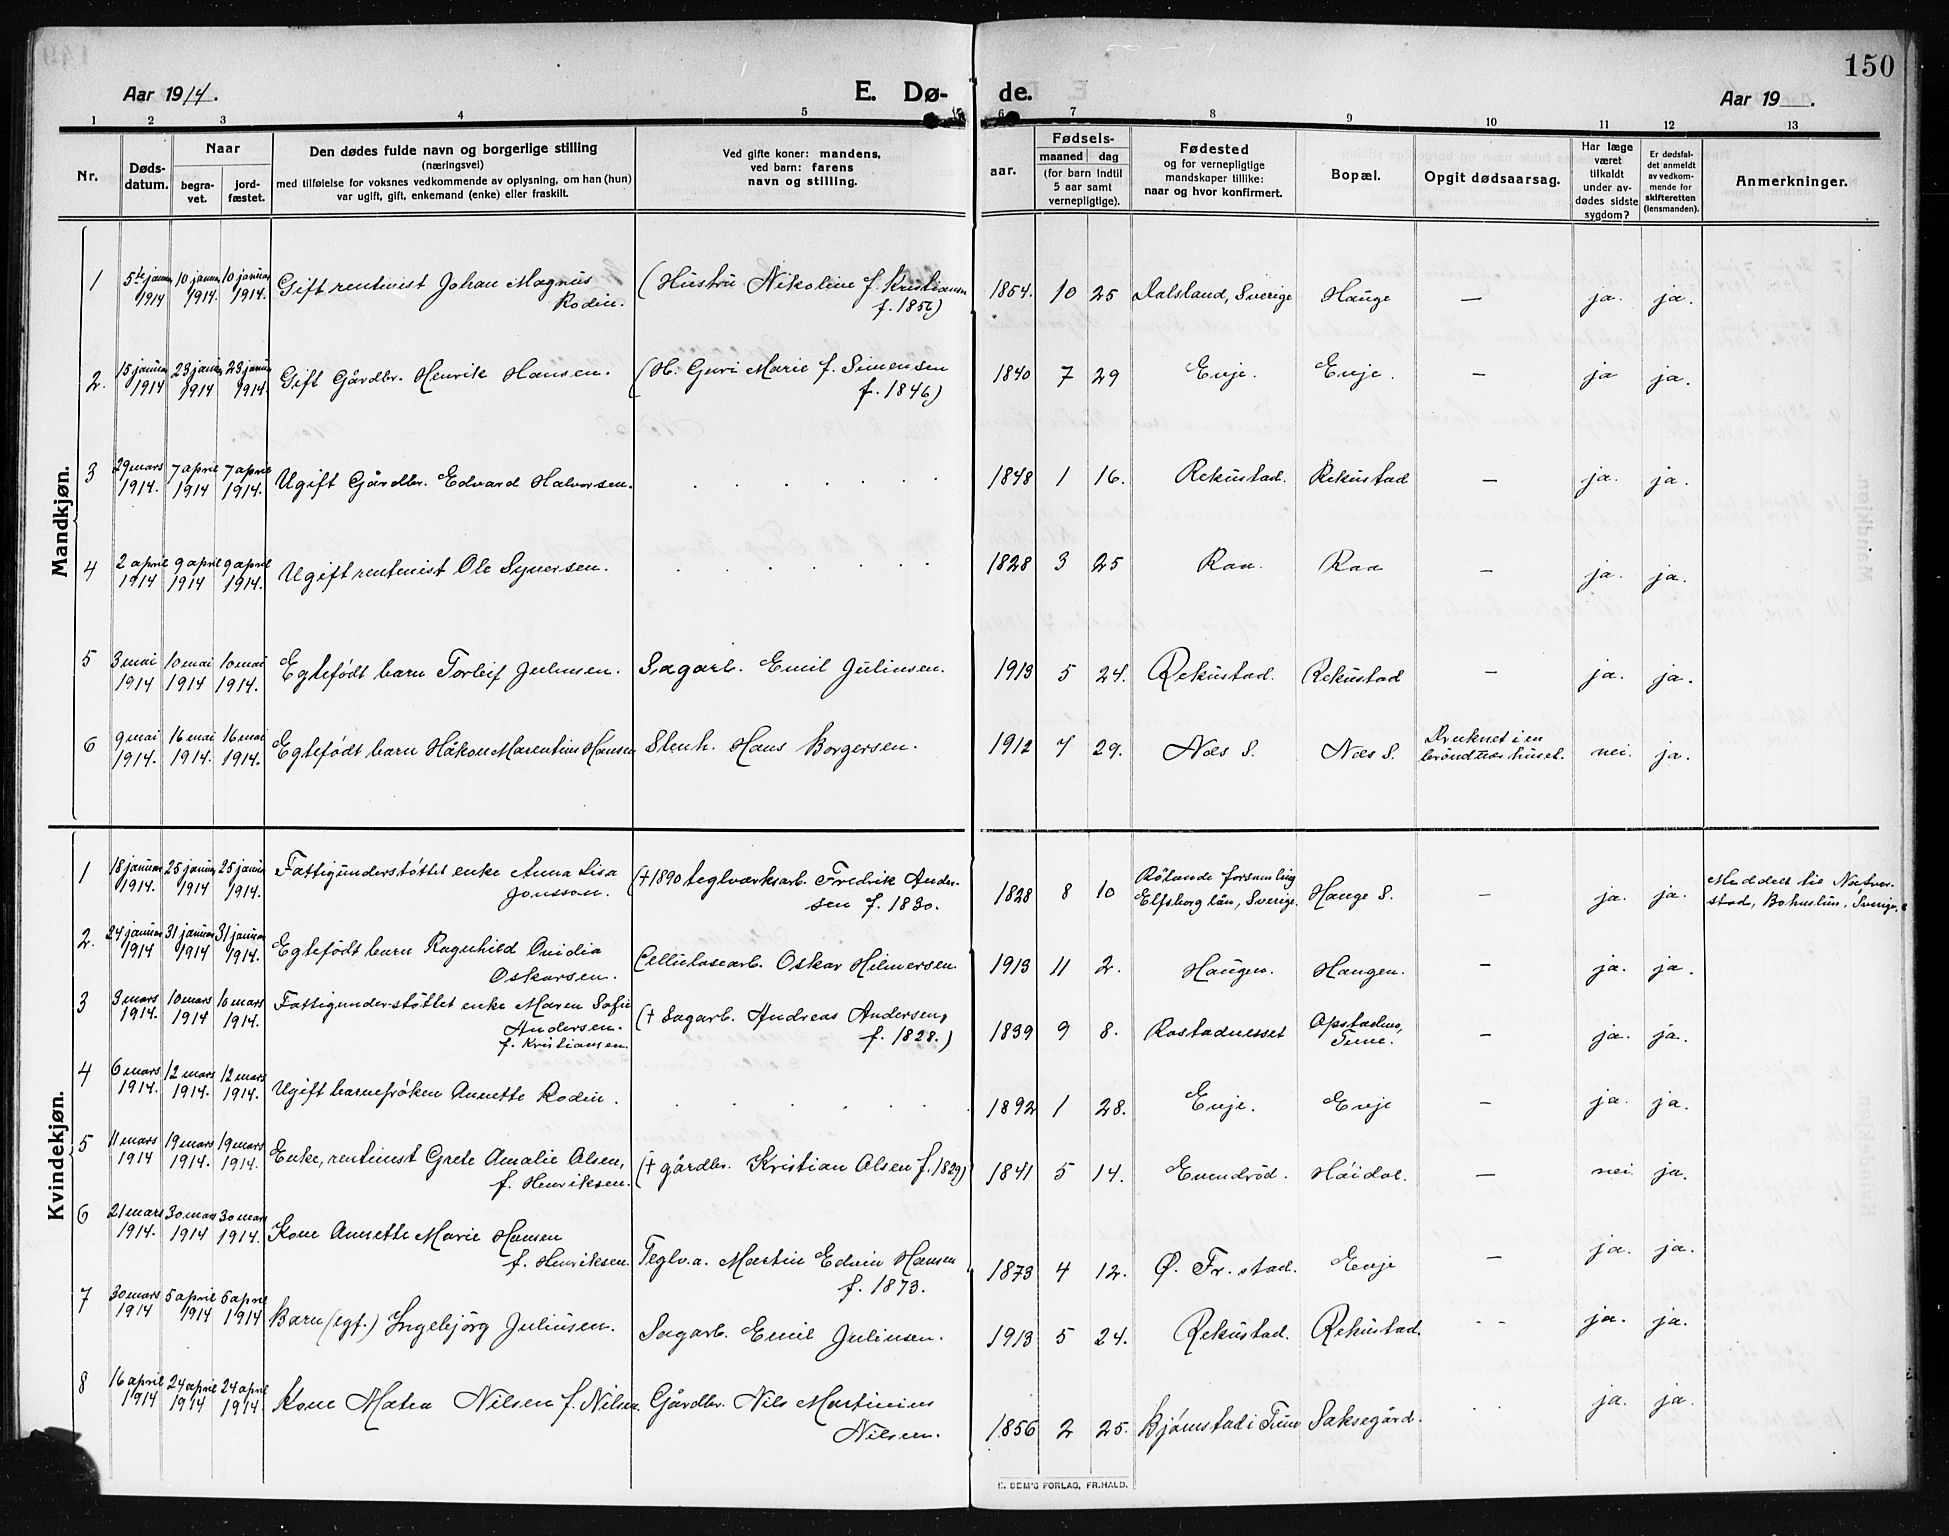 Aar 1914.
E. Dø-
de.
Aar 19 .
150
1 2 3 4 5 6 7 8 9 10 11 12 13
Nr.
Døds-
datum.
Naar
begra-
vet.
jord-
fæstet.
Den dødes fulde navn og borgerlige stilling
(næringsvei)
med tilføielse for voksnes vedkommende av oplysning, om han (hun)
var ugift, gift, enkemand (enke) eller fraskilt.
Ved gifte koner: mandens,
ved barn: farens
navn og stilling.
aar.
Fødsels-
maaned dag
(for barn indtil
5 aar samt
vernepligtige).
Fødested
og for vernepligtige
mandskaper tillike:
naar og hvor konfirmert.
Bopæl.
Opgit dødsaarsag.
Har læge
været
tilkaldt
under av-
dødes sidste
sygdom?
Er dødsfal-
det anmeldt
av vedkom-
mende for
skifteretten
(lensmanden).
Anmerkninger.
Mandkjøn.
1 5te januar 10 januar 10 januar Gift rentenist Johan Magnus (Hustru Nikoline f. Kristiansen 1854. 10 25 Dalsland, Sverige Hauge — ja. ja.
1914 1914. 1914. Rodin. f. 1856)
2. 15 januar 23 januar 23 januar Gift Gårdbr. Henrik Hansen. (H. Guri Marie f. Simensen 1840 7 29 Evje. Evje. — ja ja.
1914 1914 1914. f. 1846)
3 29 mars 7 april 7 april Ugift Gårdbr. Edvard Halvorsen. 1848 1 16. Rekustad. Rekustad — ja. ja.
1914. 1914 1914.
4 2 april 9 april 9 april Ugift rentenist Ole Syversen. 1828 3 25 Raa. Raa — ja. ja.
1914 1914 1914.
5 3 mai 10 mai 10 mai Egtefødt barn Torleif Juliusen. Sagarb. Emil Juliusen. 1913 5 24. Rekustad. Rekustad — ja. ja.
1914 1914 1914.
6 9 mai 16 mai 16 mai Egtefødt barn Håkon Marentius Hansen Stenh. Hans Borgersen. 1912 7 29. Næs S. Næs S. Druknet i en nei. ja.
1914. 1914. 1914. brønd huset.
Kvindekjøn.
1 18 januar 25 januar 25 januar Fattigunderstøttet enke Anna Lisa (†1890 teglværksarb. Fredrik Ander- 1828 8 10 Rølande forsamling Hauge S. — ja. ja. Meddelt til
1914. 1914 1914. Jonsson. sen f. 1830. Elfsborg län, Sverige. stad, Bohuslän, Sverige.
2. 24 januar 31 januar 31 januar Egtefødt barn Ragnhild Ovidia Cellulosearb. Oskar Hilmersen. 1913 11 2. Haugen. Haugen. — ja. ja.
1914 1914 1914. Oskarsen.
3 3 mars 10 mars 10 mars Fattigunderstøttet enke Maren Sofie († Sagarb. Andreas Andersen, 1839 9 8. Rostadnesset Opstadens, — ja. ja.
1914. 1914 1914. Andersen. f. 1828.) Tune.
f. Kristiansen.
4 6 mars 12 mars 12 mars Ugift barnefrøken Annette Rodin. 1892 1 28. Evje. Evje — ja. ja.
1914. 1914. 1914.
5 11 mars 19 mars 19 mars Enke, rentenist Grete Amalie Olsen, († gårdbr. Kristian Olsen f. 1829) 1841 5 14. Evendrød. Høidal. — nei. ja.
1914 1914. 1914. f. Henriksen.
6 21 mars 30 mars 30 mars Kone Annette Marie Hansen Teglv.a. Martin Edvin Hansen 1873 4 12. Ø. Fr. stad. Evje — ja. ja.
1914. 1914 1914. f. Henriksen. f. 1873.
7 30 mars 5 april 5 april Barn (egf.) Ingebjørg Juliusen. Sagarb. Emil Juliusen. 1913 5 24. Rekustad. Rekustad. - - ja. ja.
1914 1914 1914
8 16 april 24 april 24 april Kone Matea Nilsen f. Nilsen. Gårdbr. Nils Martinius 1856 2 25. Bjørnstad i Tune Saksegård. ja. ja.
1914 1914 1914. Nilsen.
E. SEM'S FORLAG, FR.HALD.